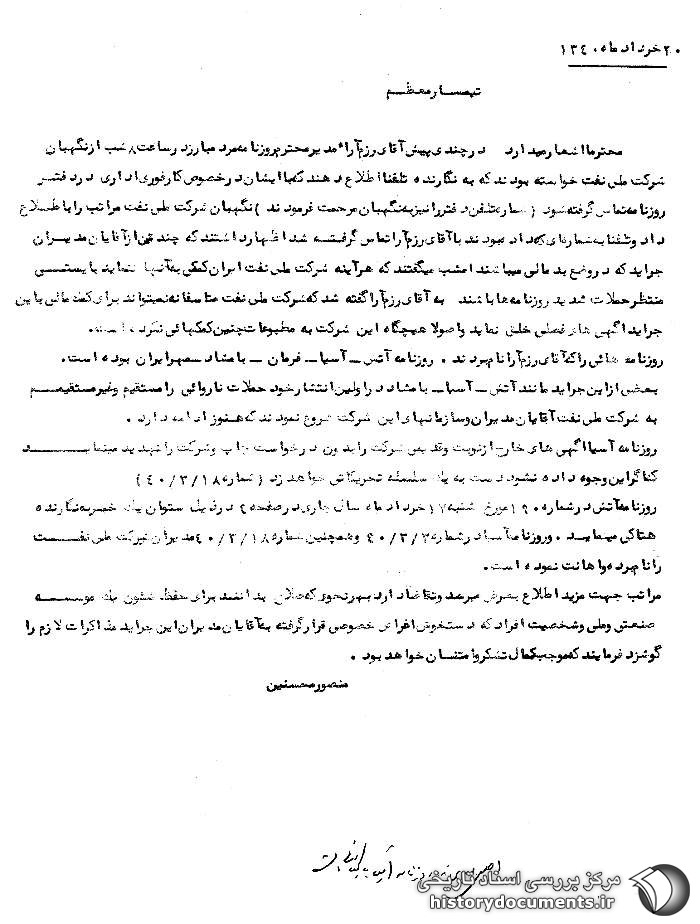 ۲۰ خرداد ماه ۱۳٤۰
تیمسار معظم
محترما اشعار میدارد در چندی پیش آقای رزم آراء مدیر محترم روزنامه مرد مبارز در ساعت ۸ شب از نگهبان
شرکت ملی نفت خواسته بودند که به نگارنده تلفنا اطلاع دهند که با ایشان در خصوص کار فوری اداری در دفتر
روزنامه تماس گرفته شود ( شماره تلفن دفتر را نیز به نگهبان مرحمت فرمودند ) نگهبان شرکت ملی نفت مراتب را باطلاع
داد و تلفنا به شماره‌ای که داده بودند با آقای رزم آرا تماس گرفته شد اظهار داشتند که چند تن از آقایان مدیران
جراید که در وضع بد مالی میباشند امشب میگفتند که هر آینه شرکت ملی نفت ایران کمکی به آنها ننماید بایستی
منتظر حملات شدید روزنامه ها باشند به آقای رزم آرا گفته شد که شرکت ملی نفت متاسفانه نمیتواند برای کمک مالی باین
جراید اگهی های فصلی خلق نماید و اصولا هیچگاه این شرکت به مطبوعات چنین کمکهائی نکرده است.
روزنامه هائی را که آقای رزم آرا نام بردند . روزنامه آتش ــ آسیا ــ فرمان ــ بامشاد ــ مهر ایران بوده است.
بعضی از این جراید مانند آتش ــ آسیا ــ بامشاد در اولین انتشار خود حملات ناروائی را مستقیم و غیر مستقیم
به شرکت ملی نفت آقایان مدیران و سازمانهای این شرکت شروع نمودند که هنوز ادامه دارد .
روزنامه آسیا اگهی های خارج از نوبت وقدیمی شرکت را بدون درخواست چاپ و شرکت را تهدید مینماید
که اگر این وجوه داده نشود دست به یک سلسله تحریکاتی خواهد زد ( شماره ٤۰/۳/۱۸ )
روزنامه آتش در شماره ۱۹۰ مورخ شنبه ۱۷ خرداد ماه سال جاری در صفحه در ذیل ستوان یک خمره به نگارنده
هتاکی مینماید . و روزنامه آسیا در شماره ٤۰/۳/ و همچنین شماره ٤۰/۳/۱۸ مدیران شرکت ملی نفت
را نام برده و اهانت نموده است.
مراتب جهت مزید اطلاع بعرض میرسد و تقاضا دارد بهر نحوی که صلاح بدانند برای حفظ شئون یک موسسه
صنعتی و ملی و شخصیت افراد که دستخوش اغراض خصوصی قرار گرفته به آقایان مدیران این جراید مذاکرات لازم را
گوشزد فرمایند که موجب کمال تشکر و امتنان خواهد بود .
منصور محسنین
مرکز بررسی اسناد تاریخی
historydocuments.ir